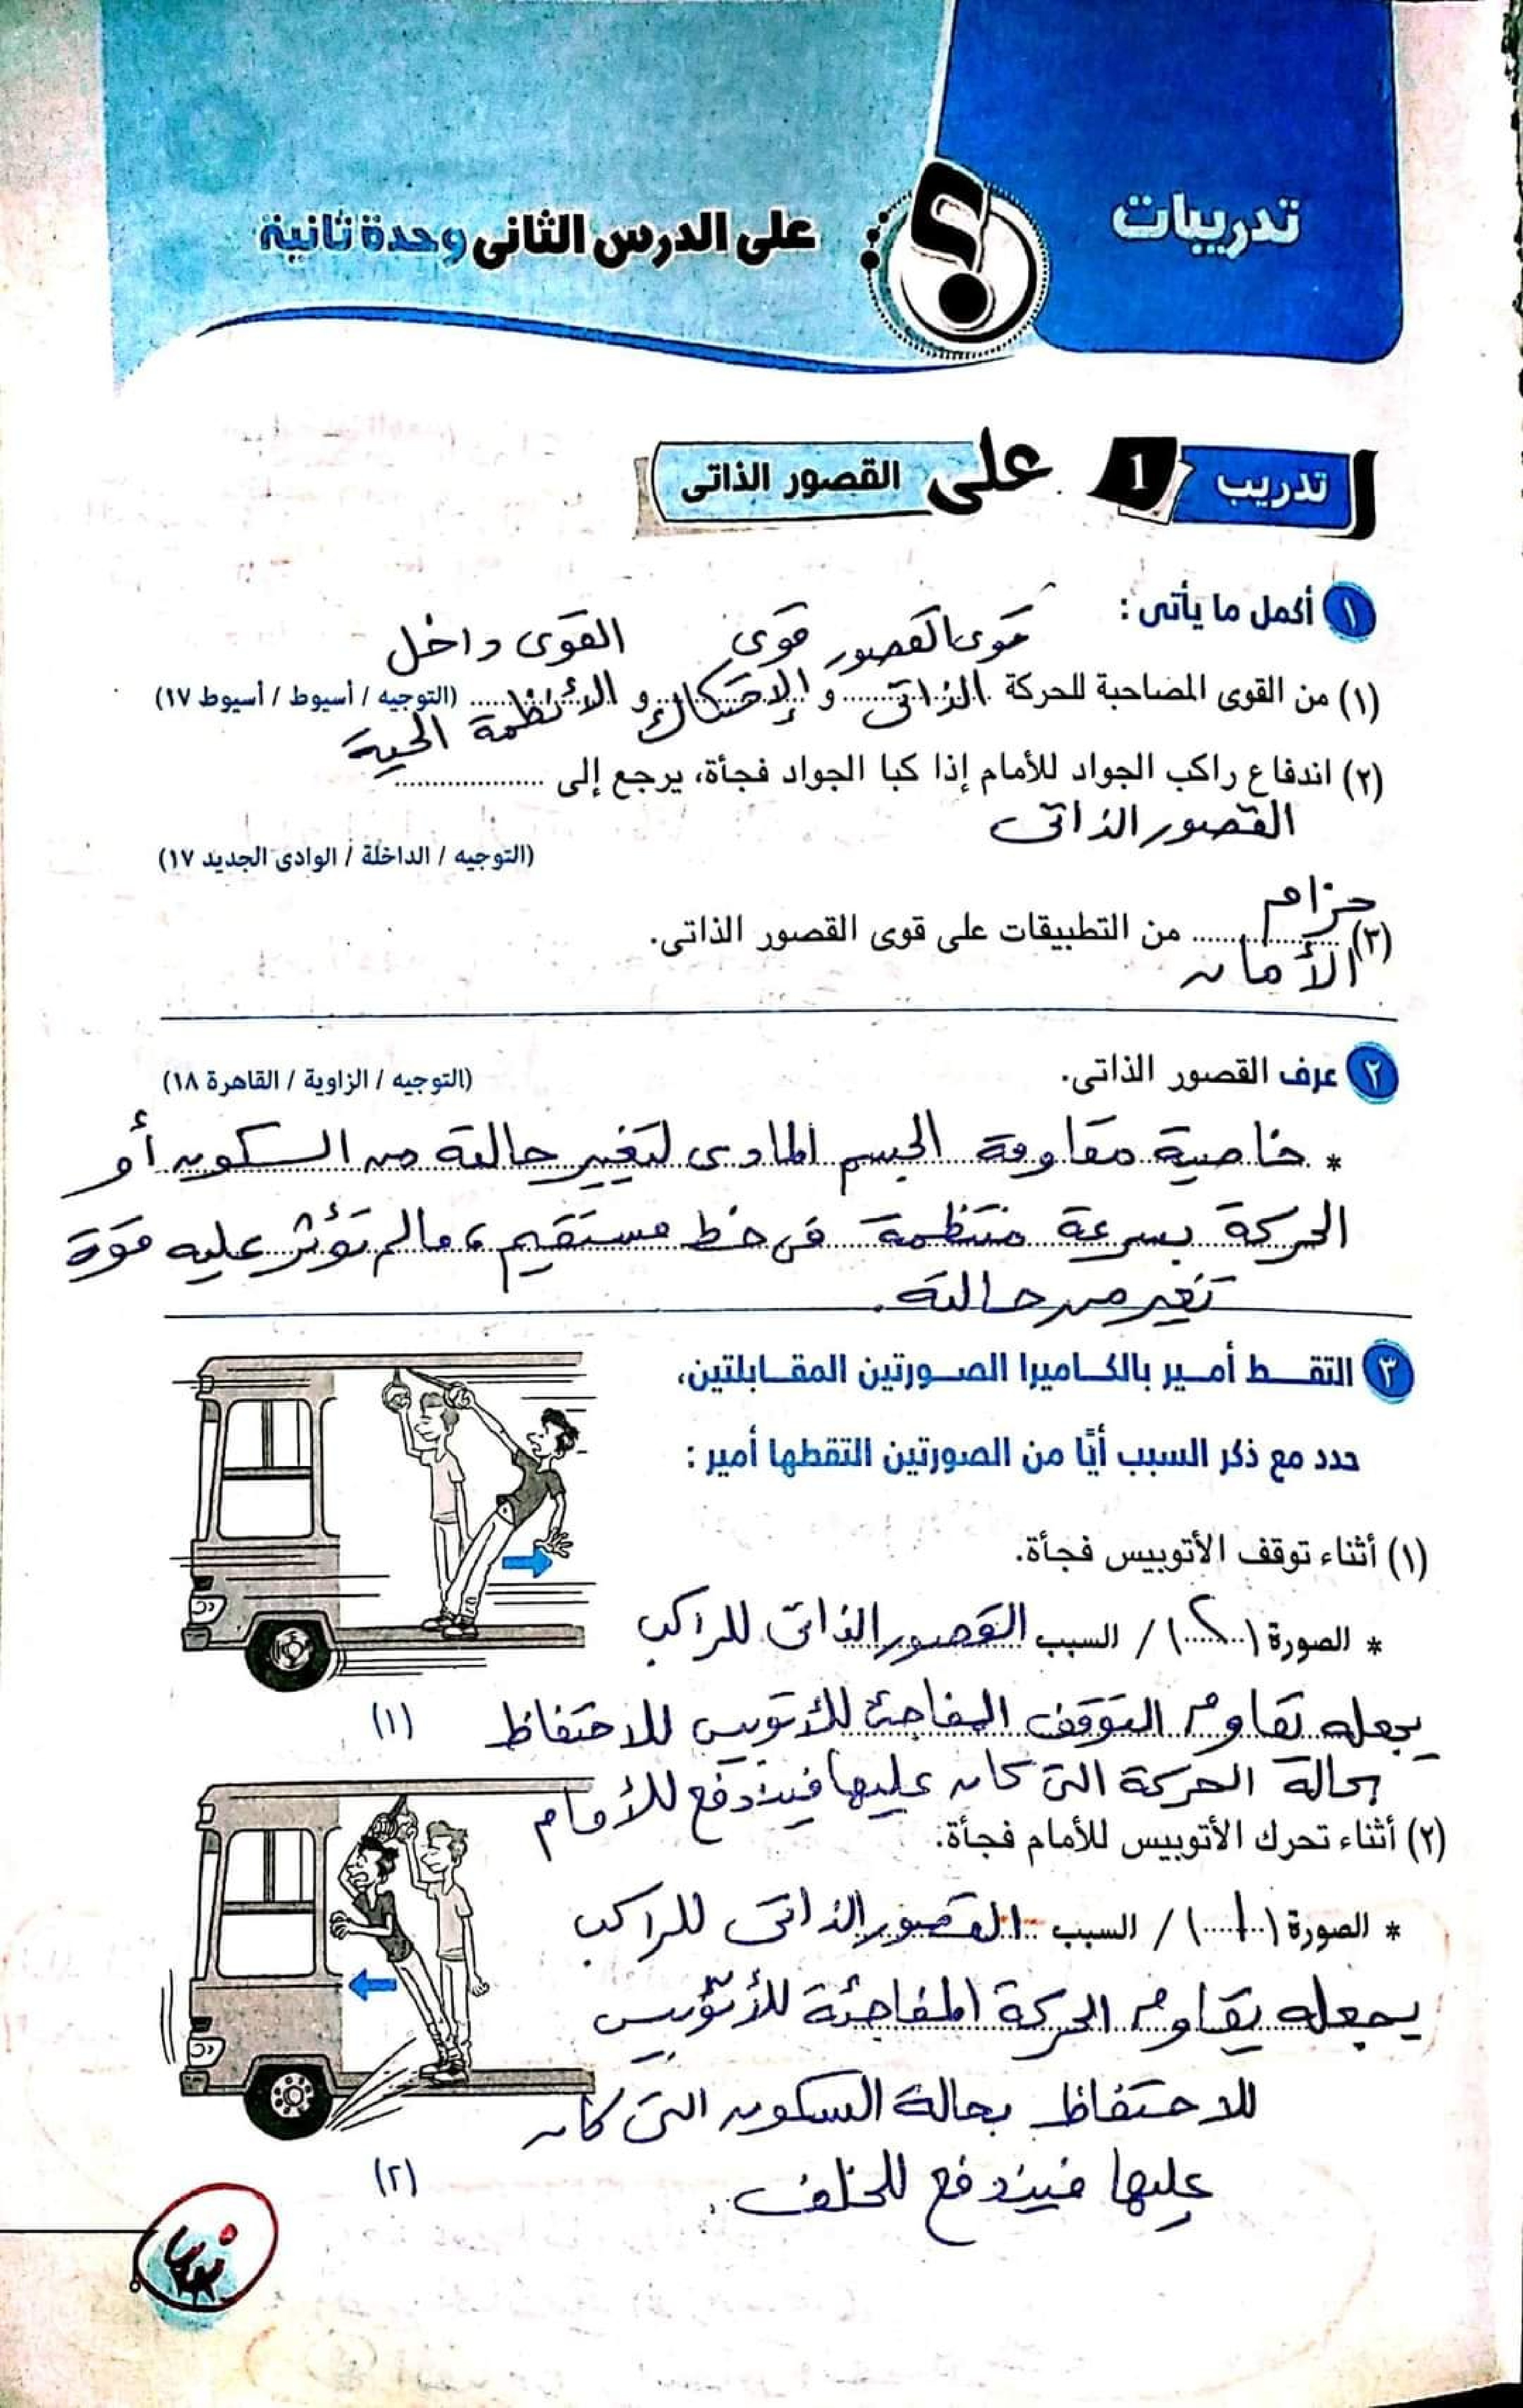 تدريبات
على الدرس الثانى وحدة ثانية
تدريب 1 على القصور الذاتى
١ أكمل ما يأتى :
قوى القصور قوى القوى داخل
(١) من القوى المصاحبة للحركة الذاتى و الإحتكاك و الأنظمة (التوجيه / أسيوط / أسيوط ١٧)
الحية
(٢) اندفاع راكب الجواد للأمام إذا كبا الجواد فجأة، يرجع إلى ..............
القصور الذاتى
(التوجيه / الداخلة / الوادى الجديد ١٧)
حزام
(٣) .............. من التطبيقات على قوى القصور الذاتى.
الأمان
٢ عرف القصور الذاتى. (التوجيه / الزاوية / القاهرة ١٨)
* خاصية مقاومة الجسم المادى لتغيير حالته من السكون أو
الحركة بسرعة منتظمة فى خط مستقيم، مالم تؤثر عليه قوة
تغير من حالته.
٣ التقط أمير بالكاميرا الصورتين المقابلتين،
حدد مع ذكر السبب أيًا من الصورتين التقطها أمير :
(١) أثناء توقف الأتوبيس فجأة.
* الصورة (٢) / السبب القصور الذاتى للراكب
يجعله تقاوم التوقف المفاجئ للأتوبيس للاحتفاظ
(١)
بحالة الحركة التى كان عليها فيندفع للأمام
(٢) أثناء تحرك الأتوبيس للأمام فجأة.
* الصورة (١) / السبب القصور الذاتى للراكب
يجعله يقاوم الحركة المفاجئة للأتوبيس
للاحتفاظ بحالة السكون التى كان
عليها فيندفع للخلف.
(٢)